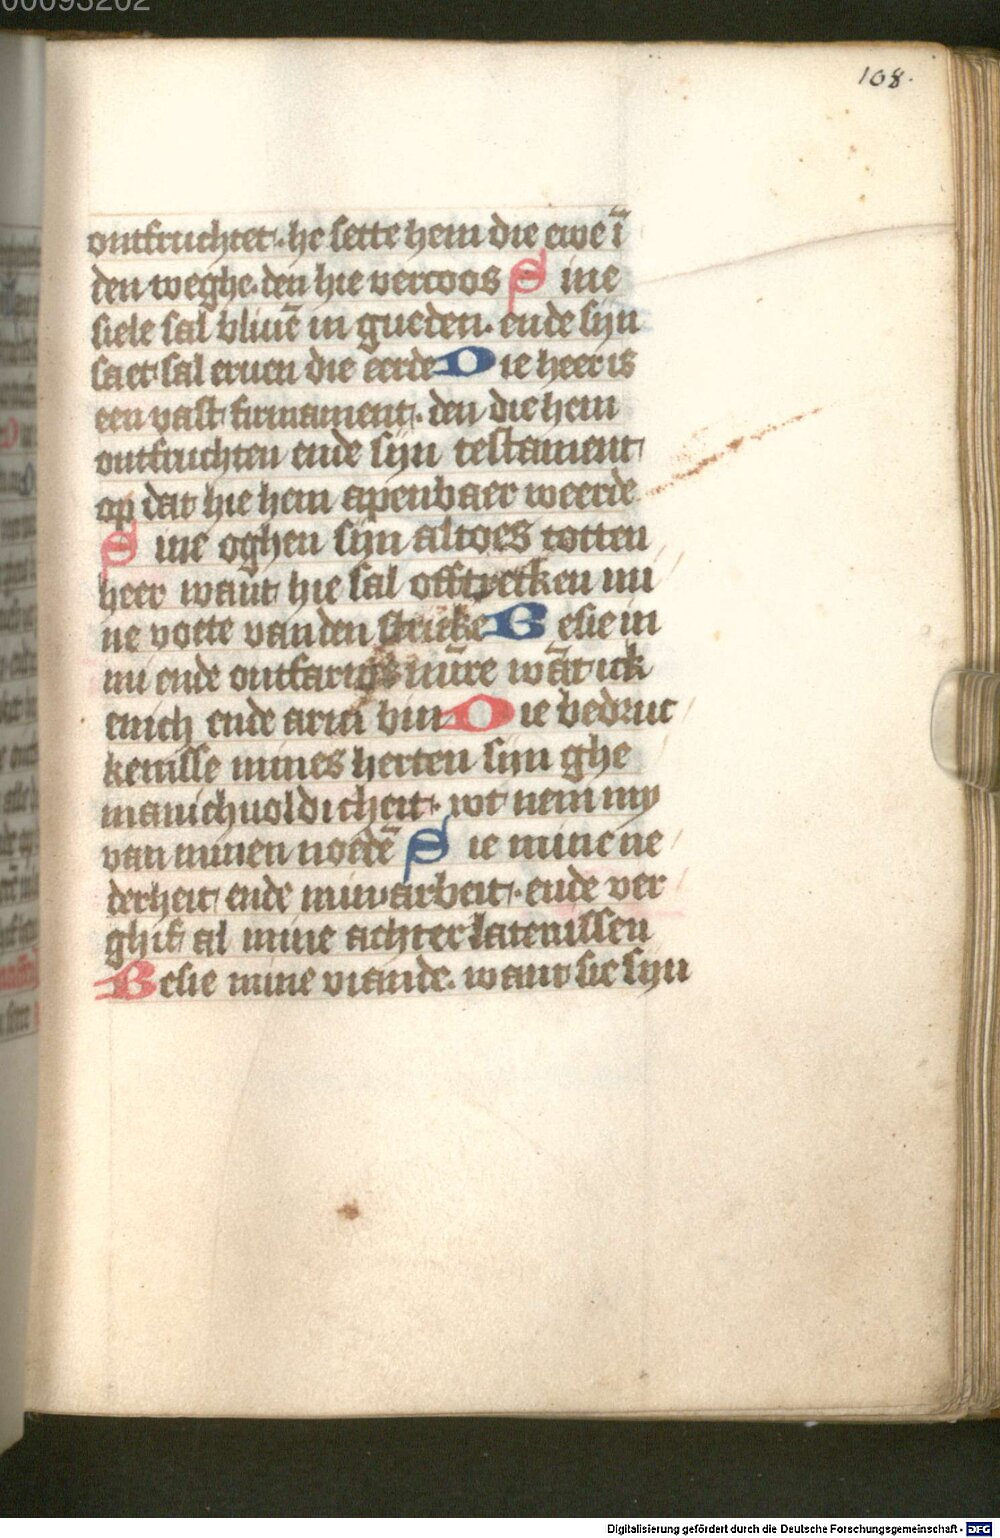 108.
ontfruchtet. he sette hem die ewe ī
den weghe. den hie vercoos Sine
siele sal bliuē in gueden. ende syn
saet sal eruen die eerde Die heer is
een vast firmament. den die hem
ontfruchten ende syn testament
op dat hie hem apenbaer weerde
Mine oghen syn altoes totten
heer want hie sal offtretken mi
ne voete van den stricke Besie in
mi ende ontfarms mūre wāt ick
enich ende arm bun Die bedruc
kenisse mines herten syn ghe
manichuoldicheit. wt nem my
van minen noedē Sie mine ne
derheit ende min arbeit. ende ver
ghif al mine achterlatenissen
Besie mine viande. want sie syn
Digitalisierung gefördert durch die Deutsche Forschungsgemeinschaft - DFG